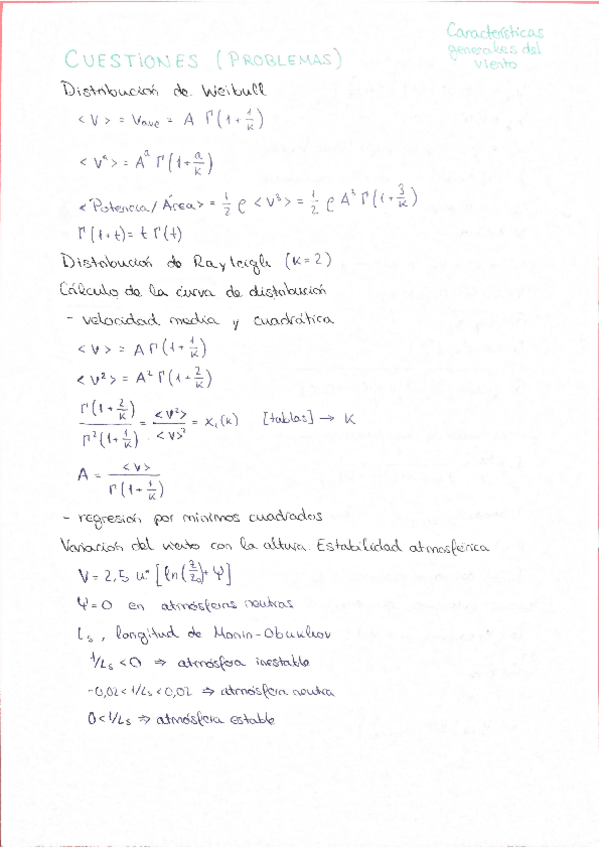 Características
generales del
viento
CUESTIONES (PROBLEMAS)
Distribución de Weibull
<V> = Vave = A Γ(1+1/K)
<Vᵃ> = Aᵃ Γ(1+a/K)
<Potencia/Área> = 1/2 ρ <V³> = 1/2 ρ A³ Γ(1+3/K)
Γ(1+t) = t Γ(t)
Distribución de Rayleigh (K=2)
Cálculo de la curva de distribución
- velocidad media y cuadrática
<V> = A Γ(1+1/K)
<V²> = A² Γ(1+2/K)
Γ(1+2/K) / Γ²(1+1/K) = <V²> / <V>² = X₁(K) [tablas] → K
A = <V> / Γ(1+1/K)
- regresión por mínimos cuadrados
Variación del viento con la altura. Estabilidad atmosférica
V = 2,5 u* [ln(z/z₀) + Ψ]
Ψ = 0 en atmósferas neutras
Ls, longitud de Monin-Obukhov
1/Ls < 0 ⇒ atmósfera inestable
-0,02 < 1/Ls < 0,02 ⇒ atmósfera neutra
0 < 1/Ls ⇒ atmósfera estable